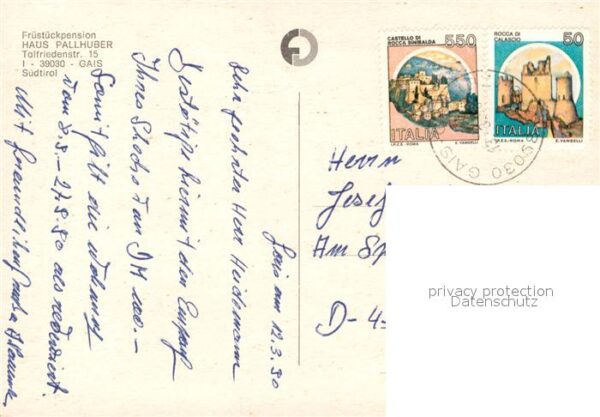 Früstückpension
HAUS PALLHUBER
Talfriedenstr. 15
I - 39030 - GAIS
Südtirol
CASTELLO DI
ROCCA SINIBALDA
550
ITALIA
I.P.Z.S. - ROMA
E. VANGELLI
ROCCA DI
CALASCIO
50
ITALIA
I.P.Z.S. - ROMA
E. VANGELLI
39030 GAIS
Gais am 12.3.90
Sehr geehrter Herr Heidemann
Bestätige hiermit den Empfang
Ihres Schecks von DM 100.-
Somit gilt die Wohnung
vom 8.8.-27.8.90 als reserviert.
Mit freundlichen
Herrn
Josef
Am Sp
D-4
privacy protection
Datenschutz